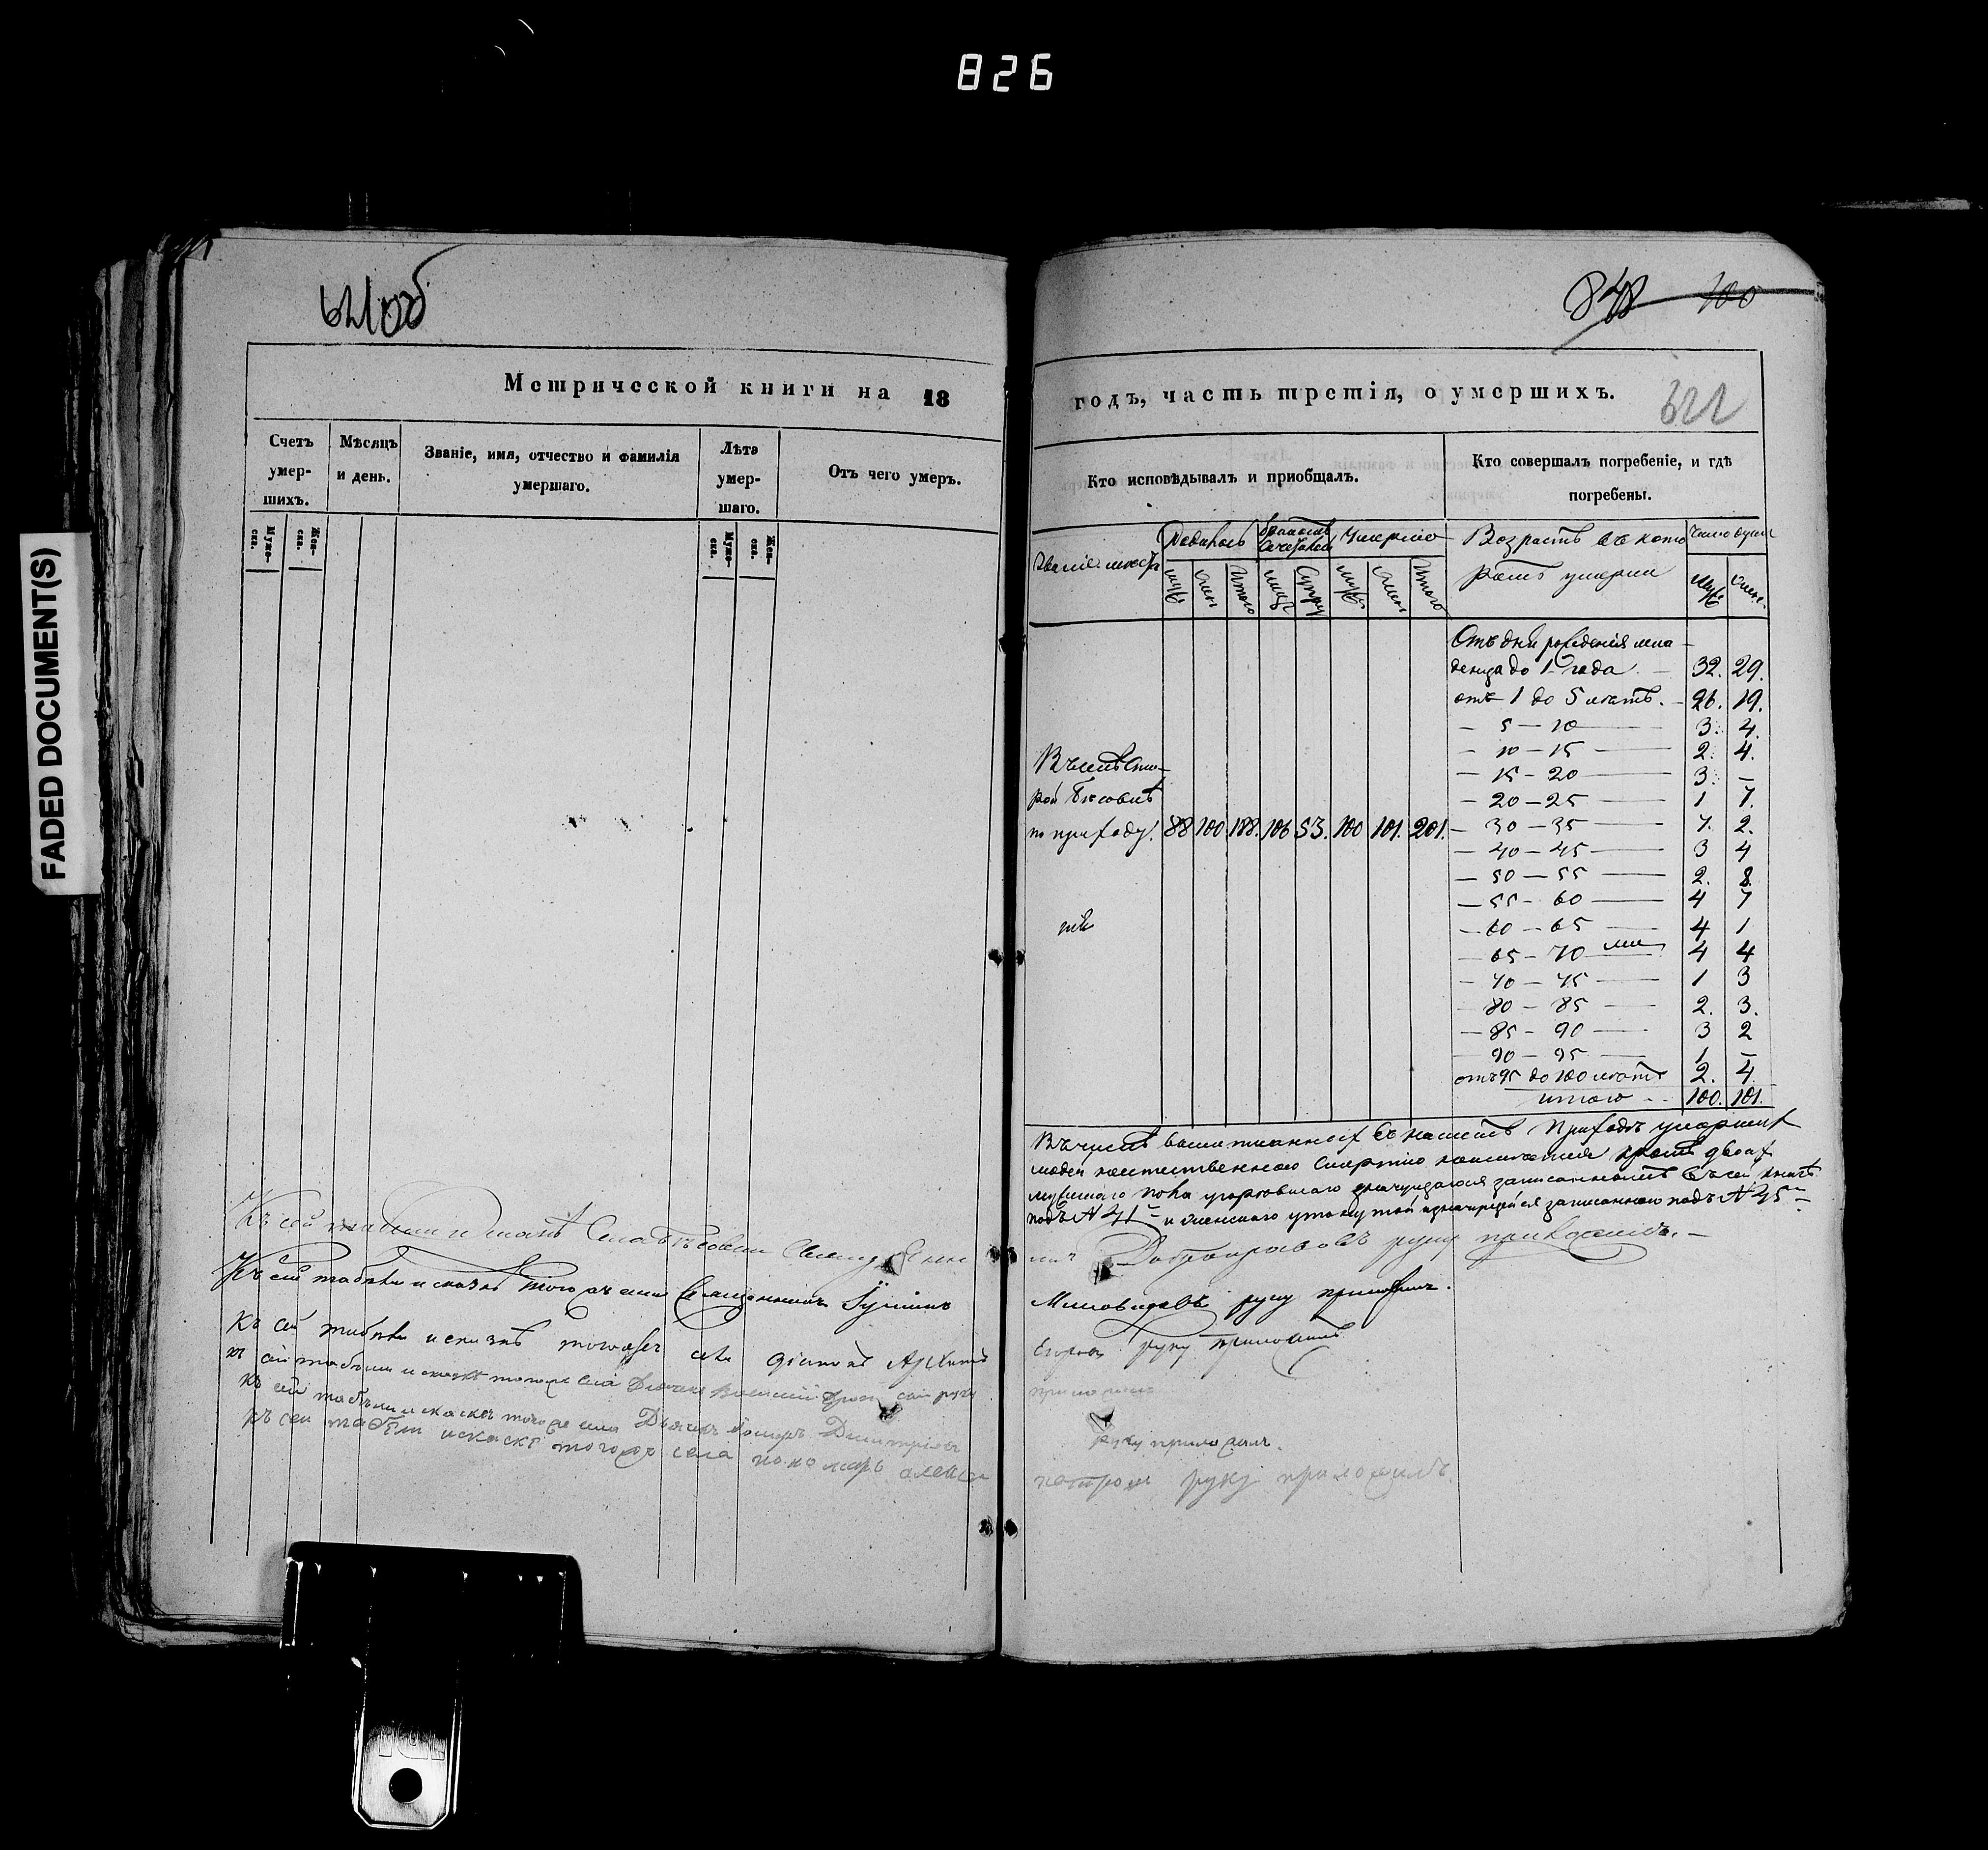 826
FADED DOCUMENT(S)
621 об
848 100
622
Метрической книги на 18
годъ, часть третія, о умершихъ.
Счетъ умершихъ.
Мѣсяцъ и день.
Званіе, имя, отчество и фамилія умершаго.
Лѣта умершаго.
Отъ чего умеръ.
Кто исповѣдывалъ и пріобщалъ.
Кто совершалъ погребеніе, и гдѣ погребены.
Мужеска.
Женска.
Мужеска.
Женска.
Званіе мѣстъ
Родилось
бракомъ сочетано
Умерло
Возрастъ въ кото
ромъ умерли
Число душъ
муж
жен
Итого
муж
жен
Итого
муж
жен
Отъ дня рожденія мла
денца до 1 года 32. 29.
отъ 1 до 5 лѣтъ. 26. 19.
— 5 — 10 — 3. 4.
— 10 — 15 — 2. 4.
— 15 — 20 — 3. —
— 20 — 25 — 1 7.
— 30 — 35 — 7. 2.
— 40 — 45 — 3 4
— 50 — 55 — 2. 8
— 55 — 60 — 4 7
— 60 — 65 — 4 1
— 65 — 70 — 4 4
— 70 — 75 — 1 3
— 80 — 85 — 2. 3.
— 85 — 90 — 3 2
— 90 — 95 — 1 —
отъ 95 до 100 лѣтъ 2. 4
итого 100. 101.
приходу. 88 100 188. 106 53. 100 101. 201.
Въ числѣ вышеписанныхъ въ нашемъ приходѣ умершихъ
людей неестественною смертію кромѣ двоихъ
мужескаго пола записаннаго въ сей книгѣ
подъ № 41 и женскаго записанною подъ № 45
Къ сей табели и сказкѣ села
Добронравовъ руку приложилъ.
Къ сей табели и сказкѣ того жъ села Священникъ Іустинъ
Миловидовъ руку приложилъ.
Къ сей табели и сказкѣ тогожъ села діаконъ
Егоровъ руку приложилъ
къ сей табели и сказкѣ тогожъ села Дьячекъ Василій руку
приложилъ
къ сей табѣли и скаскѣ тогоже села Дьячекъ Димитріевъ
руку приложилъ.
къ сеи табѣли искаскѣ тогожъ села пономарь алексѣй
петровъ руку приложилъ.